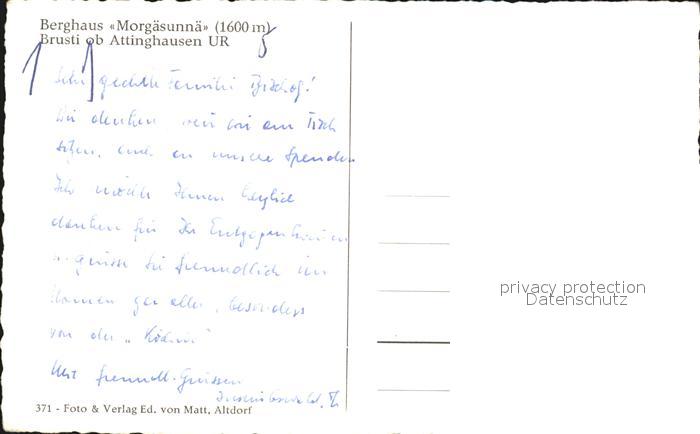 Berghaus «Morgäsunnä» (1600 m)
Brusti ob Attinghausen UR
Sehr geehrte Familie Bischof!
Wir denken wenn wir am Tisch
sitzen, auch an unsere Spender
Ich möchte Ihnen herzlich
danken für Ihr Entgegenkommen
u. grüsse Sie freundlich im
Namen aller, besonders
von der „Köchin"
Mit freundl. Grüssen
371 - Foto & Verlag Ed. von Matt, Altdorf
privacy protection
Datenschutz